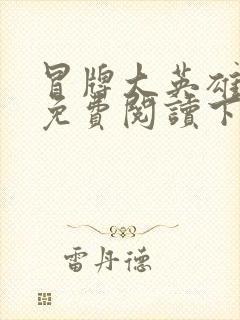 冒牌大英雄
免費閱讀下
雷丹德